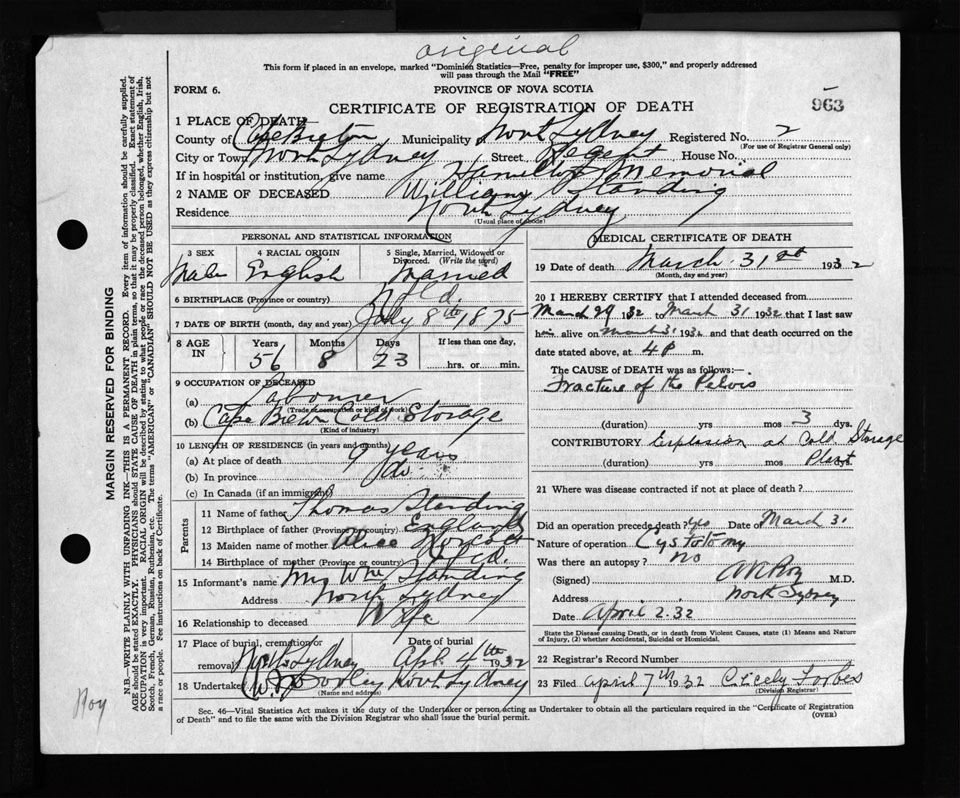 original
This form if placed in an envelope, marked "Dominion Statistics—Free, penalty for improper use, $300," and properly addressed
will pass through the Mail "FREE"
FORM 6.
PROVINCE OF NOVA SCOTIA
CERTIFICATE OF REGISTRATION OF DEATH
963
1 PLACE OF DEATH
County of Cape Breton Municipality North Sydney Registered No. 2
(For use of Registrar General only)
City or Town North Sydney Street Regent House No.
If in hospital or institution, give name Hamilton Memorial
2 NAME OF DECEASED William Standing
Residence North Sydney
(Usual place of abode)
PERSONAL AND STATISTICAL INFORMATION
3 SEX 4 RACIAL ORIGIN 5 Single, Married, Widowed or
Divorced. (Write the word)
Male English Married
6 BIRTHPLACE (Province or country) Nfld.
7 DATE OF BIRTH (month, day and year) July 8th 1875
8 AGE IN Years Months Days If less than one day,
56 8 23 hrs. or min.
9 OCCUPATION OF DECEASED
(a) Labourer
(Trade occupation or kind of work)
(b) Cape Breton Cold Storage
(Kind of industry)
10 LENGTH OF RESIDENCE (in years and months)
(a) At place of death 9 years
(b) In province do
(c) In Canada (if an immigrant)
Parents
11 Name of father Thomas Standing
12 Birthplace of father (Province or country) England
13 Maiden name of mother Alice
14 Birthplace of mother (Province or country) Nfld.
15 Informant's name Mrs Wm Standing
Address North Sydney
16 Relationship to deceased Wife
17 Place of burial, cremation or Date of burial
removal North Sydney Apr. 4th 1932
18 Undertaker Dooley North Sydney
(Name and address)
MEDICAL CERTIFICATE OF DEATH
19 Date of death March 31st 1932
(Month, day and year)
20 I HEREBY CERTIFY that I attended deceased from
March 29 1932 to March 31 1932 that I last saw
him alive on March 31 1932 and that death occurred on the
date stated above, at 4 P m.
The CAUSE of DEATH was as follows:—
Fracture of the Pelvis
(duration) yrs mos 3 dys.
CONTRIBUTORY Explosion at Cold Storage
(duration) yrs mos Plant
21 Where was disease contracted if not at place of death?
Did an operation precede death? Yes Date of March 31
Nature of operation Cystotomy
Was there an autopsy? No
(Signed) M.D.
Address North Sydney
Date April 2. 32
State the Disease causing Death, or in death from Violent Causes, state (1) Means and Nature
of Injury, (2) whether Accidental, Suicidal or Homicidal.
22 Registrar's Record Number
23 Filed April 7th 1932 Cicely Forbes
(Division Registrar)
Sec. 46—Vital Statistics Act makes it the duty of the Undertaker or person acting as Undertaker to obtain all the particulars required in the "Certificate of Registration
of Death" and to file the same with the Division Registrar who shall issue the burial permit.
(OVER)
MARGIN RESERVED FOR BINDING
N.B.—WRITE PLAINLY WITH UNFADING INK—THIS IS A PERMANENT RECORD. Every item of information should be carefully supplied.
AGE should be stated EXACTLY. PHYSICIANS should STATE CAUSE OF DEATH in plain terms, so that it may be properly classified. Exact statement of
OCCUPATION is very important. RACIAL ORIGIN will be described by stating to what people or race the deceased person belonged, whether English, Irish,
Scotch, French, German, Russian, Ruthenian, etc. The terms "AMERICAN" or "CANADIAN" SHOULD NOT BE USED as they express citizenship but not
a race or people. See instructions on back of Certificate.
Roy